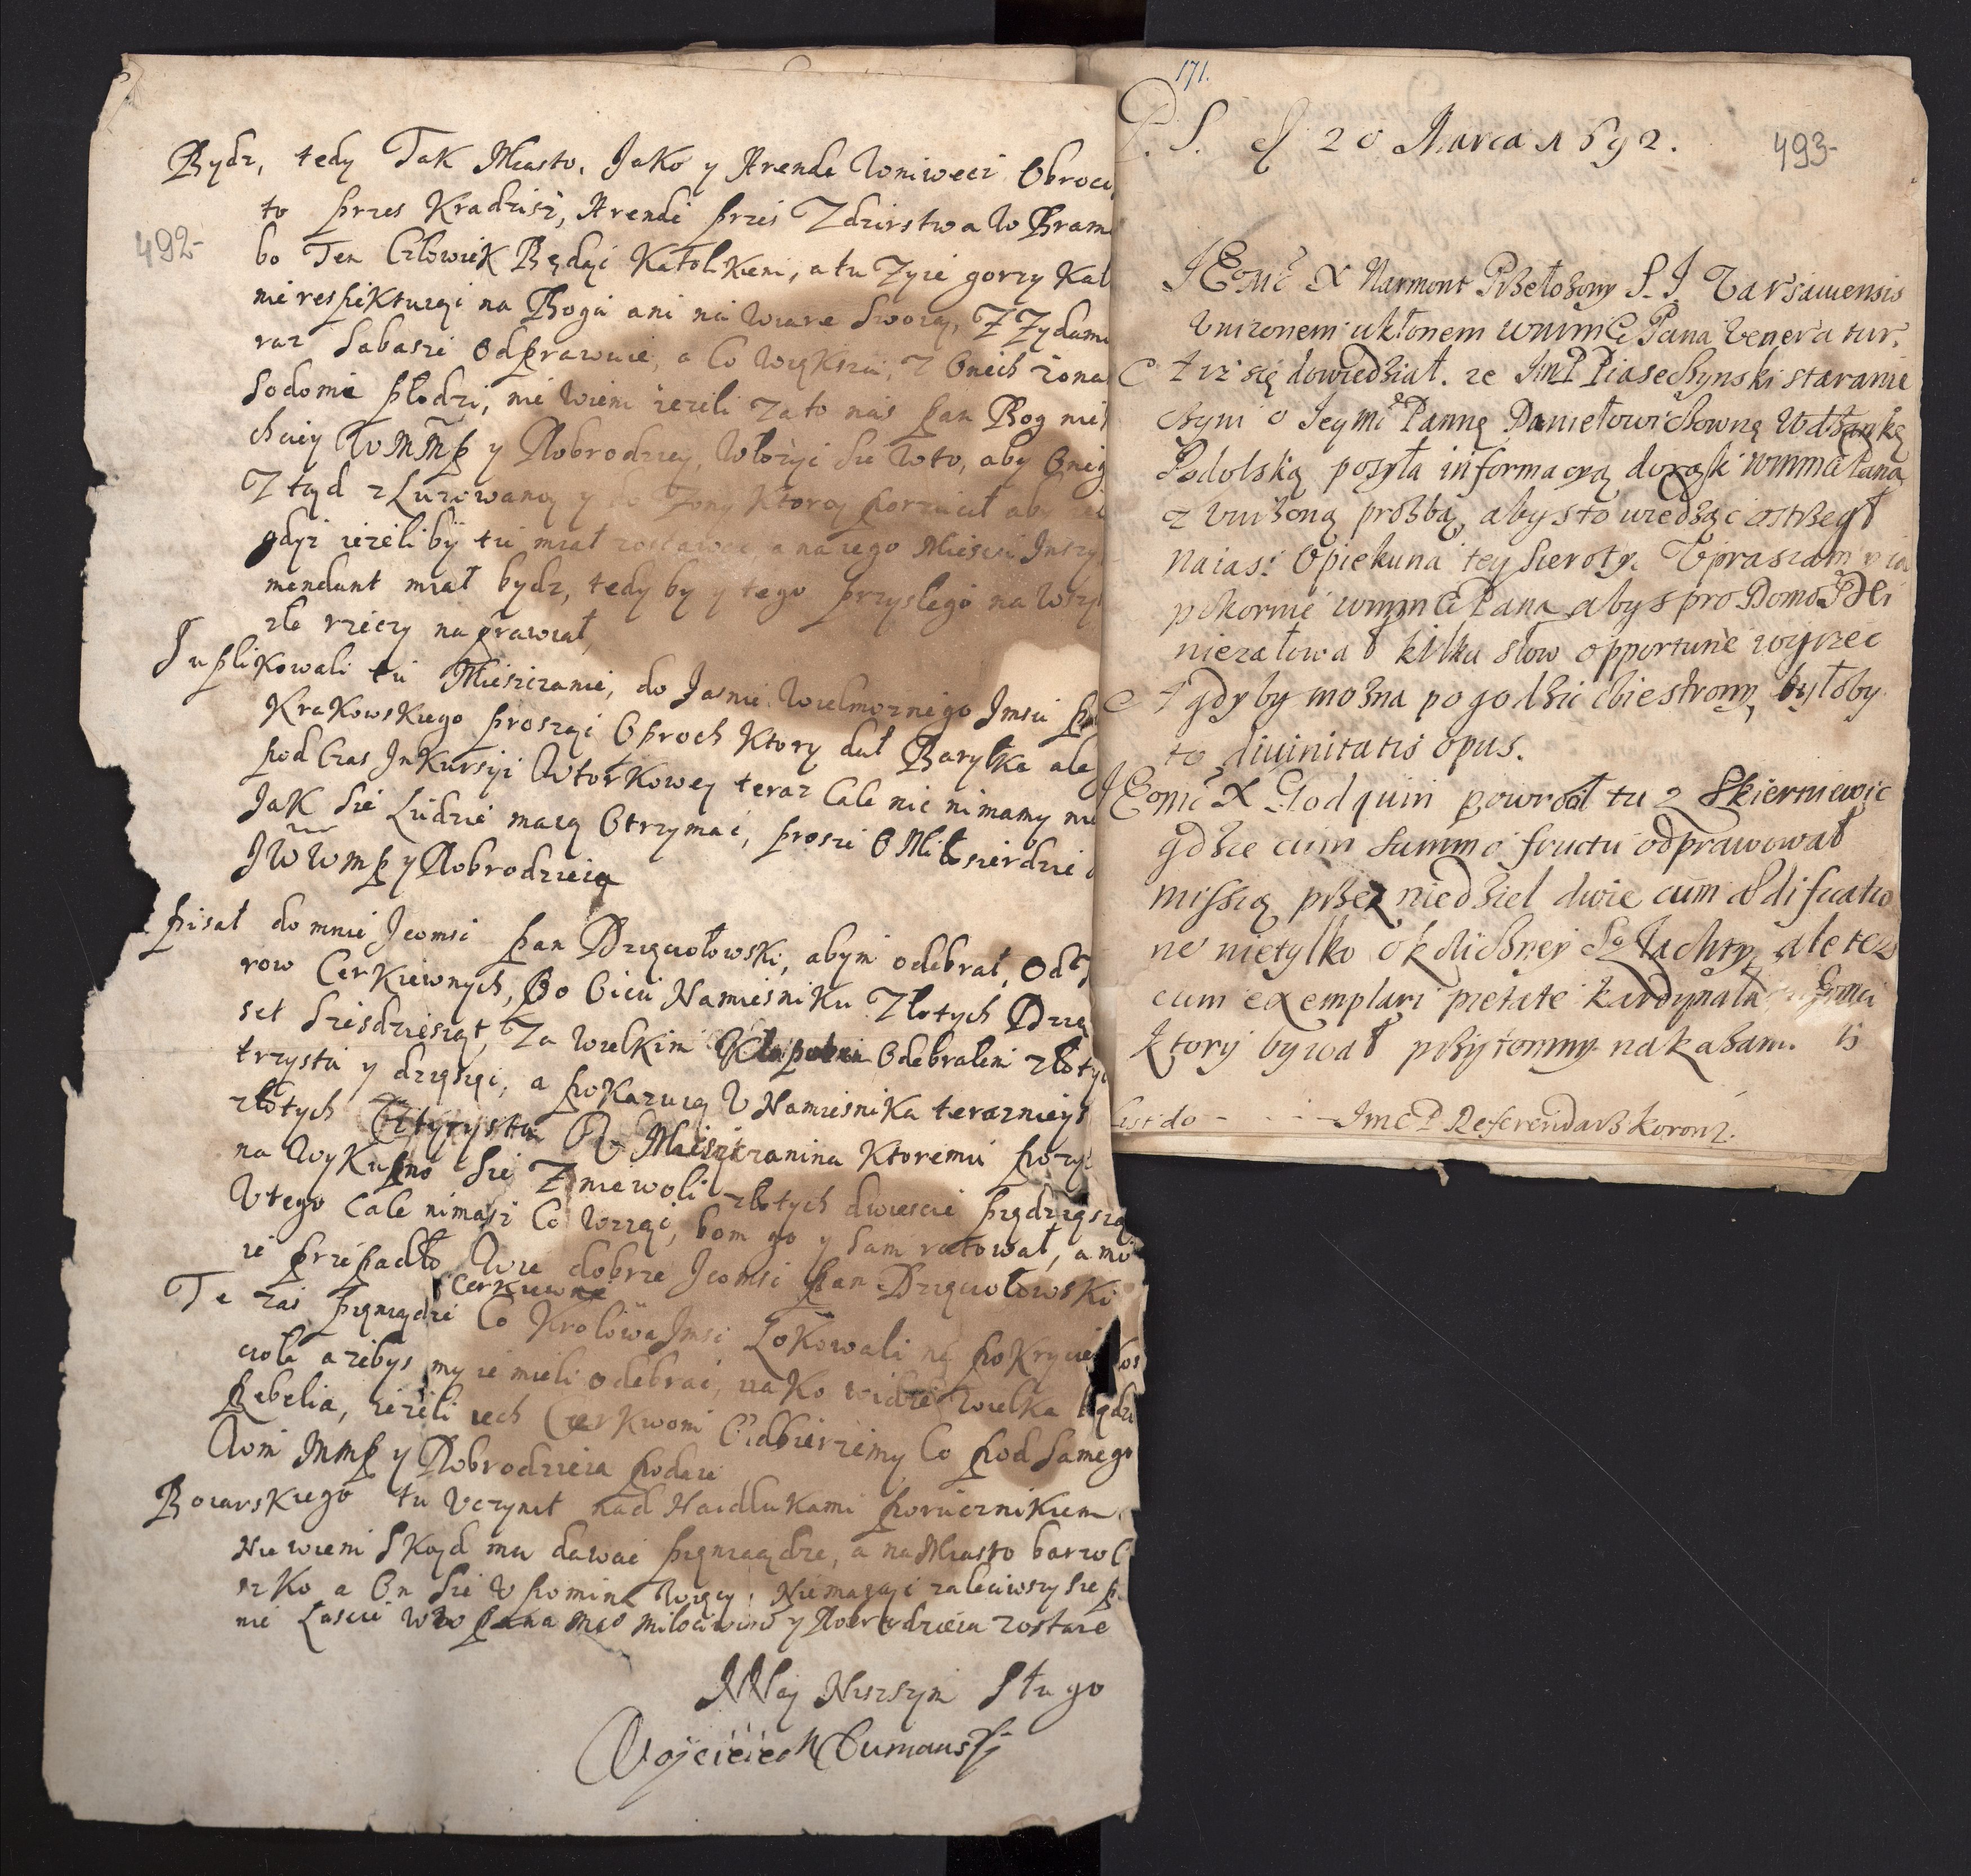 492-
Bydz, tedy Tak Miasto, Jako y Arenda Wniwecz Obroci
to przes Kradzisz, Arende przes Zdzirstwa W Bram
bo Ten Człowiek Będąc Katolikiem, a tu Zyie gorzy Kal
nie respiktuiąci na Boga ani na Wiare Swoią, Z Zydami
raz Sabasze Odprawuie, a Co Większa, Z Onech żona
Sodomie płodzi, nie Wiem ieżeli Zato nas pan Bog nie
chciey WMMP y Dobrodziey, Włożyc Sie Wto, aby Oneg
Ztąd zLuzowano y do Zony Ktorą porzucił aby
gdyż ieżeliby tu miał zostawac, a na iego Mieiscu Inszy
mendant miał bydz, tedy by y tego przyszlego na Wszy
złe rzeczy naprawiał,
Suplikowali tu Mieszczanie, do Jasnie Wielmoznego Jmsci Pa
Krakowskiego prosząc O proch Ktory dał Baryłka ale
pod Czas Jnkursyi Wtorkowey teraz Cale nic nimamy
Jak Sie Ludzie maią Otrzymac, prosze O Miłosierdzie
JWWMP y Dobrodzieia
Pisał do mnie Jeomsc pan Dzięciołowski, abym odebrał Od
row Cerkiewnych, Po Oicu Namiesniku Złotych Dzie
set Szesdziesiąt, Za Wielkim Odebrałem złoty
trzysta y dziesięc, a pokazuią U Namiesnika teraznieys
złotych Cztyrysta U Mieszczanina Ktoremu pozy
na Wykupno Sie Z niewoli złotych dwiescie pięcdziesią
U tego Cale nimasz Co Wziąc, bom go y Sam ratował, a mo
ie przepadło Wie dobrze Jeomsc pan Dzięciołowski
Cerkiewne
Te zas pieniądze Co Krolowa Jmsc Lokowali na pokrycie Kos
cioła azebys my ie mieli odebrac, iako widze Wielka będzie
Rebelia, ieżeli iech Cerkwom Odbierzemy Co pod Samego
Wom MMP y Dobrodzieia podaie
Boiarskiego tu Uczynił nad Haidukami porucznikiem
Nie wiem Skąd mu dawac pieniąądze, a na Miasto barzo C
szko a On Sie Upomina Więcy Niemaiąc zaleciwszy Sie p
nie Łasce WMM pana mego miłosciwego y Dobrodzieia zostaie
Nay Niszszym Sługo
Woyciech
171.
493-
P. S. d 20 Marca 1692.
JEomć X Marmont Przełozony S. J. Varsaviensis
Unizonem ukłonem WmmC Pana Veneratur.
Et iz się dowiedział. ze JmP Piaseczynski staranie
czyni o Jeymć Pannę Daniełowiczowną Wdzanką
Podolską posyła informacyą do rąk Wmmć Pana
z Unizoną prozbą, abys to wiedząc ostrzegł
naias: Opiekuna tey Sieroty. Upraszam y ia
pokornie WmmC Pana abys pro Domo Dei
niezałował kilku słow opportune wyrzec
Et gdyby mozna pogodzic obie strony, byłoby
to divinitatis opus.
JEomć X Godquin powrocił tu z Skierniewic
gdzie cum Summo fructu odprawował
missią przez niedziel dwie cum ædificatio
ne nietylko okoliczney Szlachty, ale tez
cum exemplari pietate kardynała Jmci
ktory bywał przytomny na kazam.
List do - - - - JmC P Referendarz koronz.